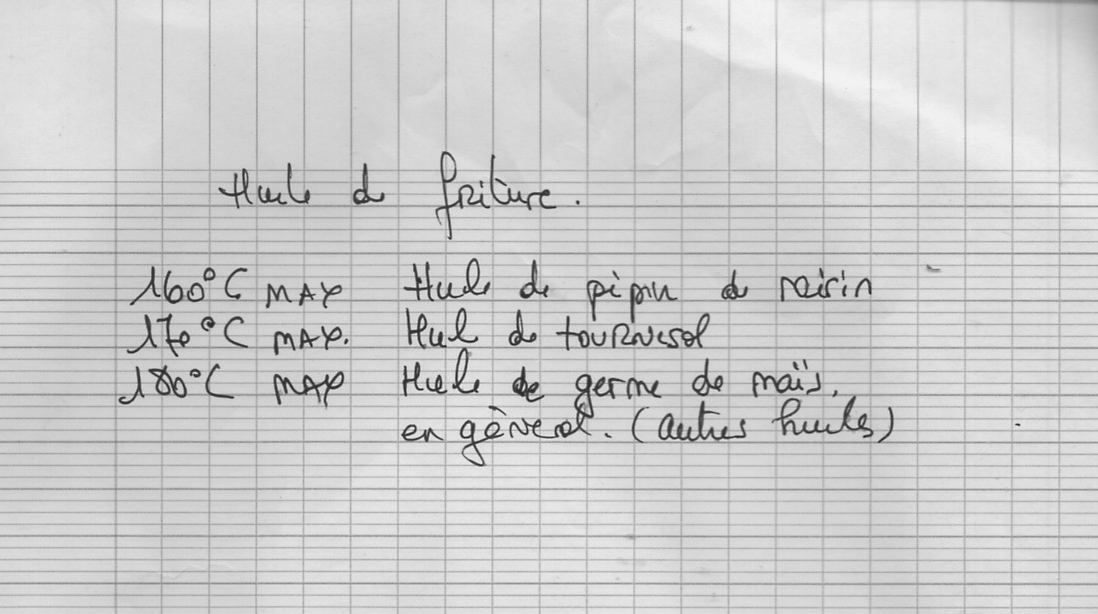 Huile de friture.
160°C MAX Huile de pépin de raisin
170°C MAX. Huile de tournesol
180°C MAX Huile de germe de maïs.
en général. (autres huiles)